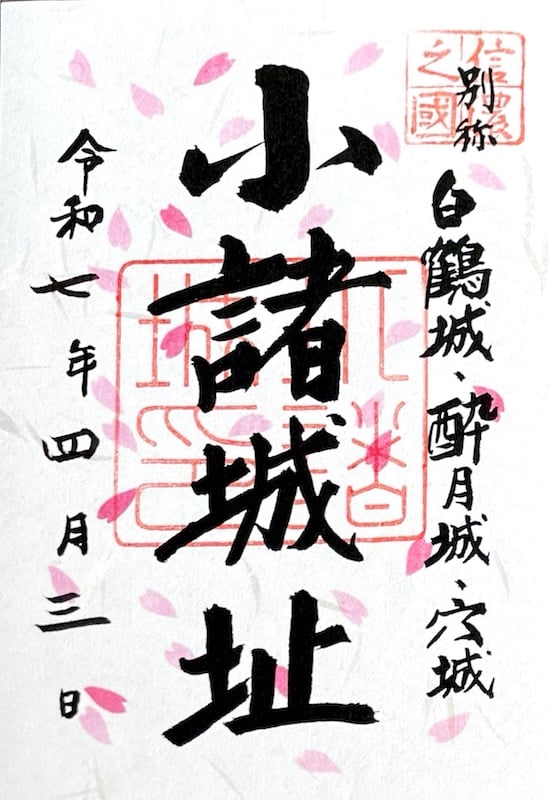 別称 白鶴城、酔月城、穴城
小諸城址
令和七年四月三日
信濃之國
小諸城之印